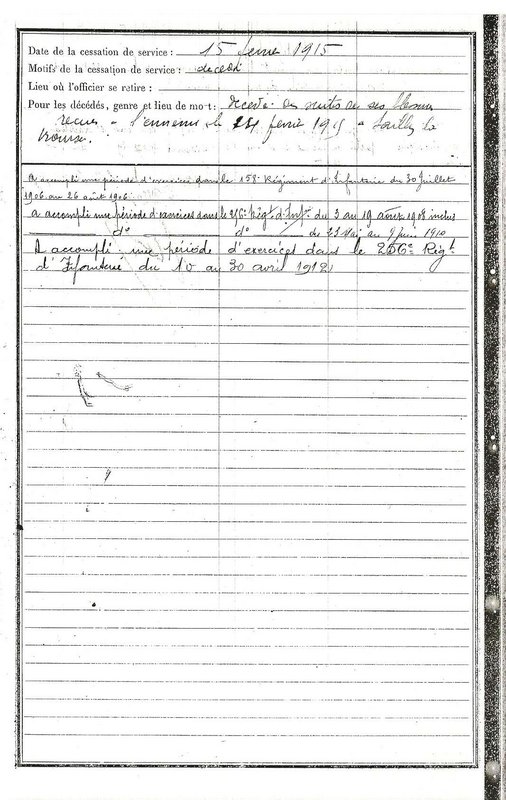 Date de la cessation de service : 15 fevrier 1915
Motifs de la cessation de service : décédé
Lieu où l'officier se retire :
Pour les décédés, genre et lieu de mort : décédé des suites de ses blessures
reçues l'ennemi le fevrier 1915 Sailly la
Bourse.
A accompli une période d'exercices dans le 158e Régiment d'Infanterie du 30 Juillet
1906 au 26 août 1906.
a accompli une période d'exercices dans le 256e Régt d'Inft. du 3 au 19 1908 inclus
do do du 23 Mai au 9 Juin 1910
A accompli une période d'exercices dans le 256e Régt.
d'Infanterie du 10 au 30 avril 1912